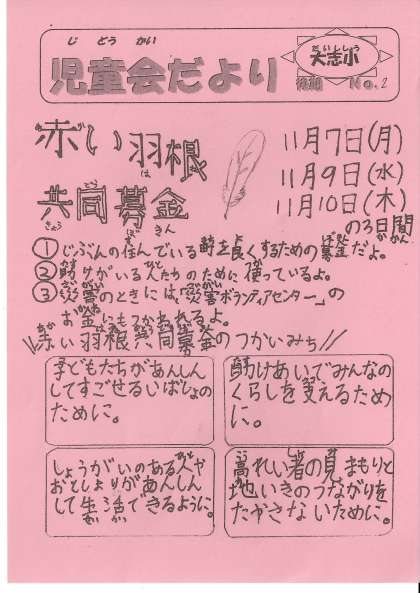 じどうかい
児童会だより
だいししょう
大志小
後期 No.2
赤い羽根
共同募金
11月7日(月)
11月9日(水)
11月10日(木)
の3日間
①じぶんの住んでいる町を良くするための募金だよ。
②助けがいる人たちのために使っているよ。
③災害のときには、「災害ボランティアセンター」の
お金にもつかわれるよ。
赤い羽根共同募金のつかいみち
子どもたちがあんしん
してすごせるいばしょの
ために。
助けあいでみんなの
くらしを支えるため
に。
しょうがいのある人や
おとしよりがあんしん
して生活できるように。
高れい者の見まもりと
地いきのつながりを
たやさないために。